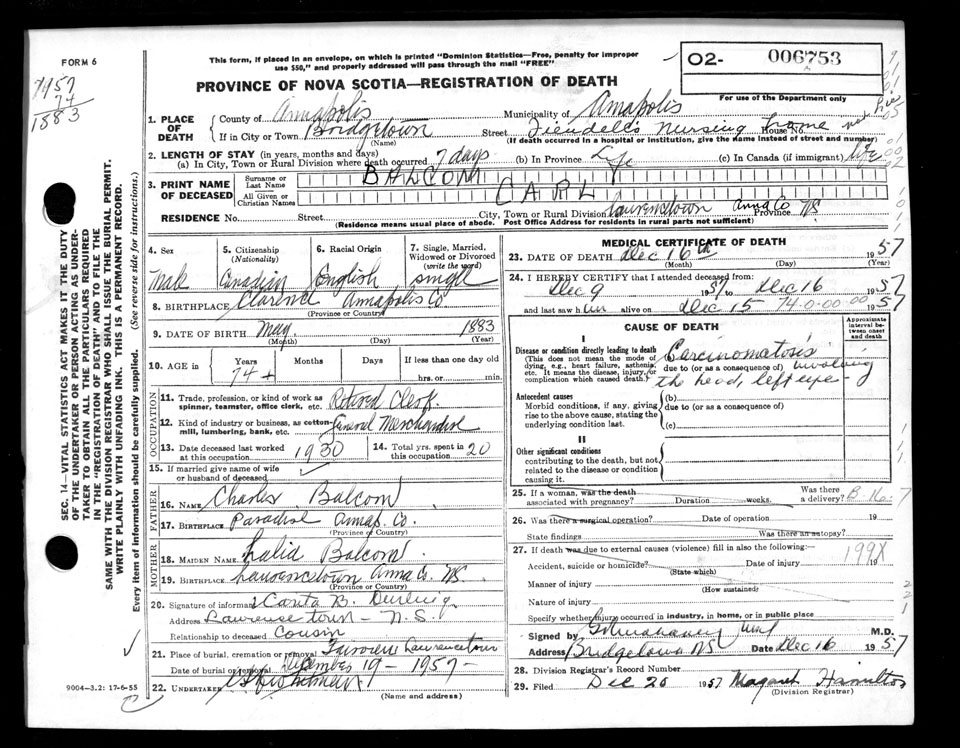 FORM 6
This form, if placed in an envelope, on which is printed "Dominion Statistics—Free, penalty for improper
use $50," and properly addressed will pass through the mail "FREE"
O2- 006753
For use of the Department only
1957
74
1883
PROVINCE OF NOVA SCOTIA—REGISTRATION OF DEATH
1. PLACE OF DEATH
County of Annapolis Municipality of Annapolis
If in City or Town Bridgetown Street Nursing Home House No.
(Name) (If death occurred in a hospital or institution, give the name instead of street and number)
2. LENGTH OF STAY (in years, months and days)
(a) In City, Town or Rural Division where death occurred 7 days (b) In Province Life (c) In Canada (if immigrant) Life
3. PRINT NAME OF DECEASED
Surname or Last Name BALCOM
All Given or Christian Names CARL
RESIDENCE No. Street City, Town or Rural Division Lawrencetown Anna Co Province NS
(Residence means usual place of abode. Post Office Address for residents in rural parts not sufficient)
4. Sex Male
5. Citizenship (Nationality) Canadian
6. Racial Origin English
7. Single, Married, Widowed or Divorced (write the word) single
8. BIRTHPLACE Clarence Annapolis Co
(Province or Country)
9. DATE OF BIRTH May 1883
(Month) (Day) (Year)
10. AGE in Years Months Days If less than one day old
74 + hrs. or min.
OCCUPATION
11. Trade, profession, or kind of work as spinner, teamster, office clerk, etc. Retired Clerk
12. Kind of industry or business, as cotton-mill, lumbering, bank, etc. General Merchandise
13. Date deceased last worked at this occupation 1930
14. Total yrs. spent in this occupation 20
15. If married give name of wife or husband of deceased
FATHER
16. NAME Charles Balcom
17. BIRTHPLACE Paradise Annap. Co.
(Province or Country)
MOTHER
18. MAIDEN NAME Balcom
19. BIRTHPLACE Lawrencetown Anna Co. NS
(Province or Country)
20. Signature of informant B.
Address Lawrencetown - N.S.
Relationship to deceased Cousin
21. Place of burial, cremation or removal Fairview Lawrencetown
Date of burial or removal December 19 - 1957 -
22. UNDERTAKER
(Name and address)
9004-3.2: 17-6-55
MEDICAL CERTIFICATE OF DEATH
23. DATE OF DEATH Dec 16th 1957
(Month) (Day) (Year)
24. I HEREBY CERTIFY that I attended deceased from:
Dec 9 1957 to Dec 16
and last saw him alive on Dec 15 74-0-00-00 1957
CAUSE OF DEATH
Approximate interval between onset and death
I
Disease or condition directly leading to death
(This does not mean the mode of dying, e.g., heart failure, asthenia, etc. It means the disease, injury, or complication which caused death.)
Carcinomatosis
due to (or as a consequence of) involving
the head, left eye
Antecedent causes
Morbid conditions, if any, giving rise to the above cause, stating the underlying condition last.
(b)
due to (or as a consequence of)
(c)
II
Other significant conditions
contributing to the death, but not related to the disease or condition causing it.
25. If a woman, was the death associated with pregnancy? Duration weeks. Was there a delivery?
26. Was there a surgical operation? Date of operation 19
State findings Was there an autopsy?
27. If death was due to external causes (violence) fill in also the following:
Accident, suicide or homicide? Date of injury 19
(State which)
199X
Manner of injury
(How sustained)
Nature of injury
Specify whether injury occurred in industry, in home, or in public place
Signed by M.D.
Address Bridgetown NS Date Dec 16 1957
28. Division Registrar's Record Number
29. Filed Dec 20 1957 Margaret Hamilton
(Division Registrar)
SEC. 14—VITAL STATISTICS ACT MAKES IT THE DUTY
OF THE UNDERTAKER OR PERSON ACTING AS UNDER-
TAKER TO OBTAIN ALL THE PARTICULARS REQUIRED
IN THE "REGISTRATION OF DEATH" AND TO FILE THE
SAME WITH THE DIVISION REGISTRAR WHO SHALL ISSUE THE BURIAL PERMIT.
WRITE PLAINLY WITH UNFADING INK. THIS IS A PERMANENT RECORD.
Every item of information should be carefully supplied. (See reverse side for instructions.)